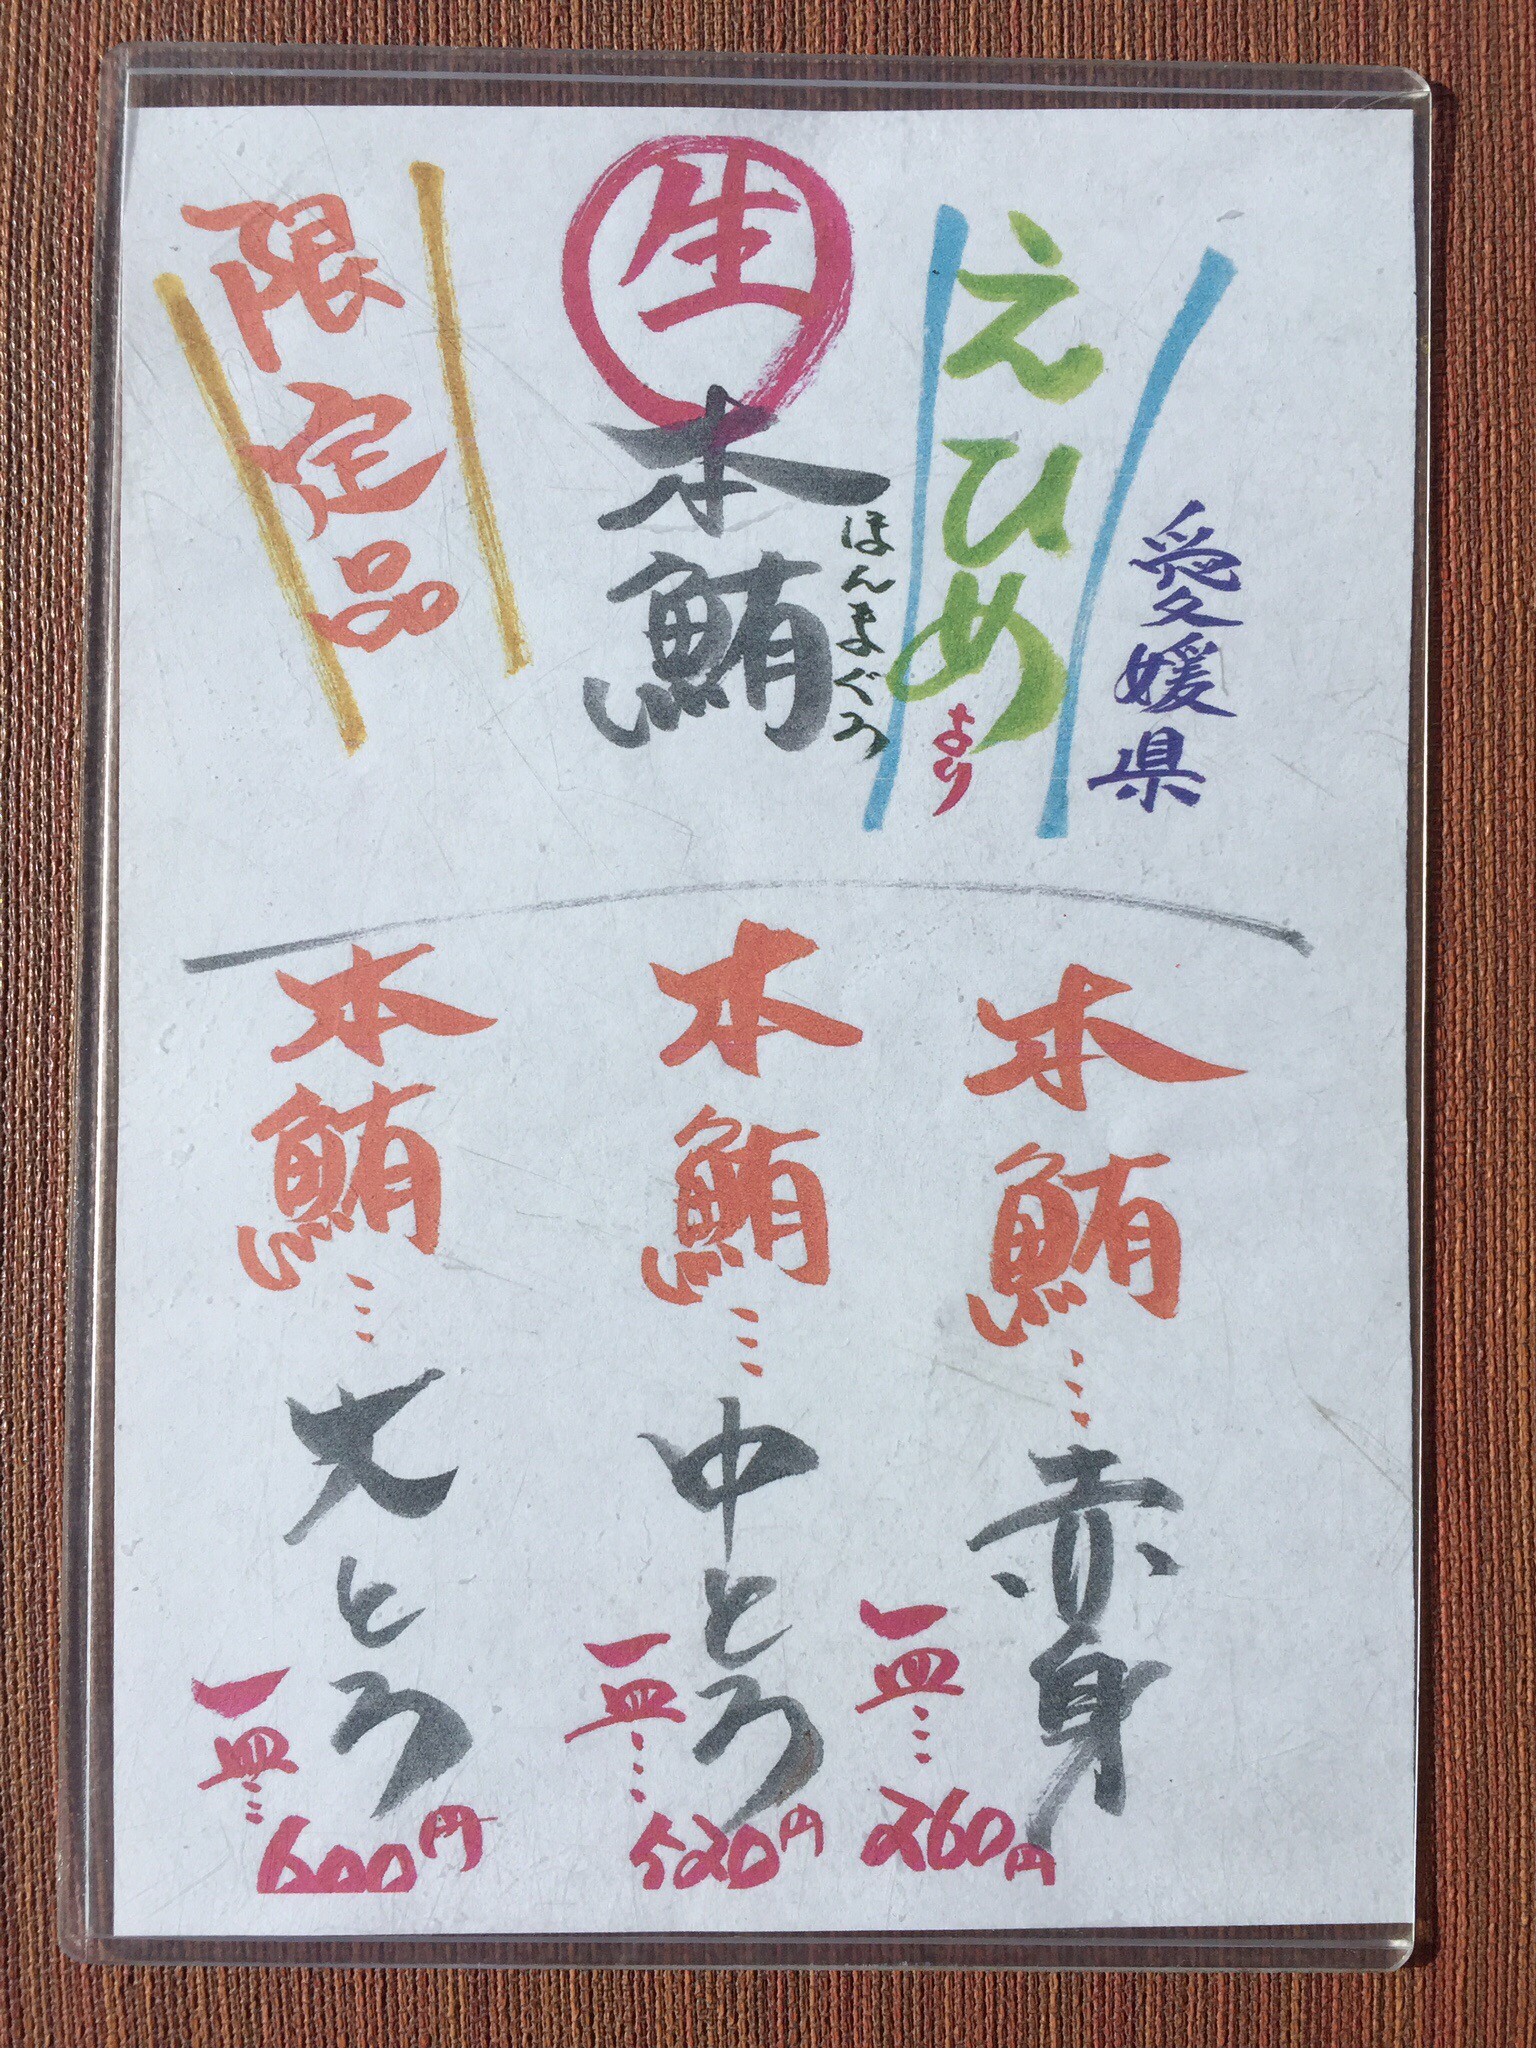 愛媛県
えひめより
生本鮪
ほんまぐろ
限定品
本鮪…赤身
一皿…260円
本鮪…中とろ
一皿…520円
本鮪…大とろ
一皿…600円